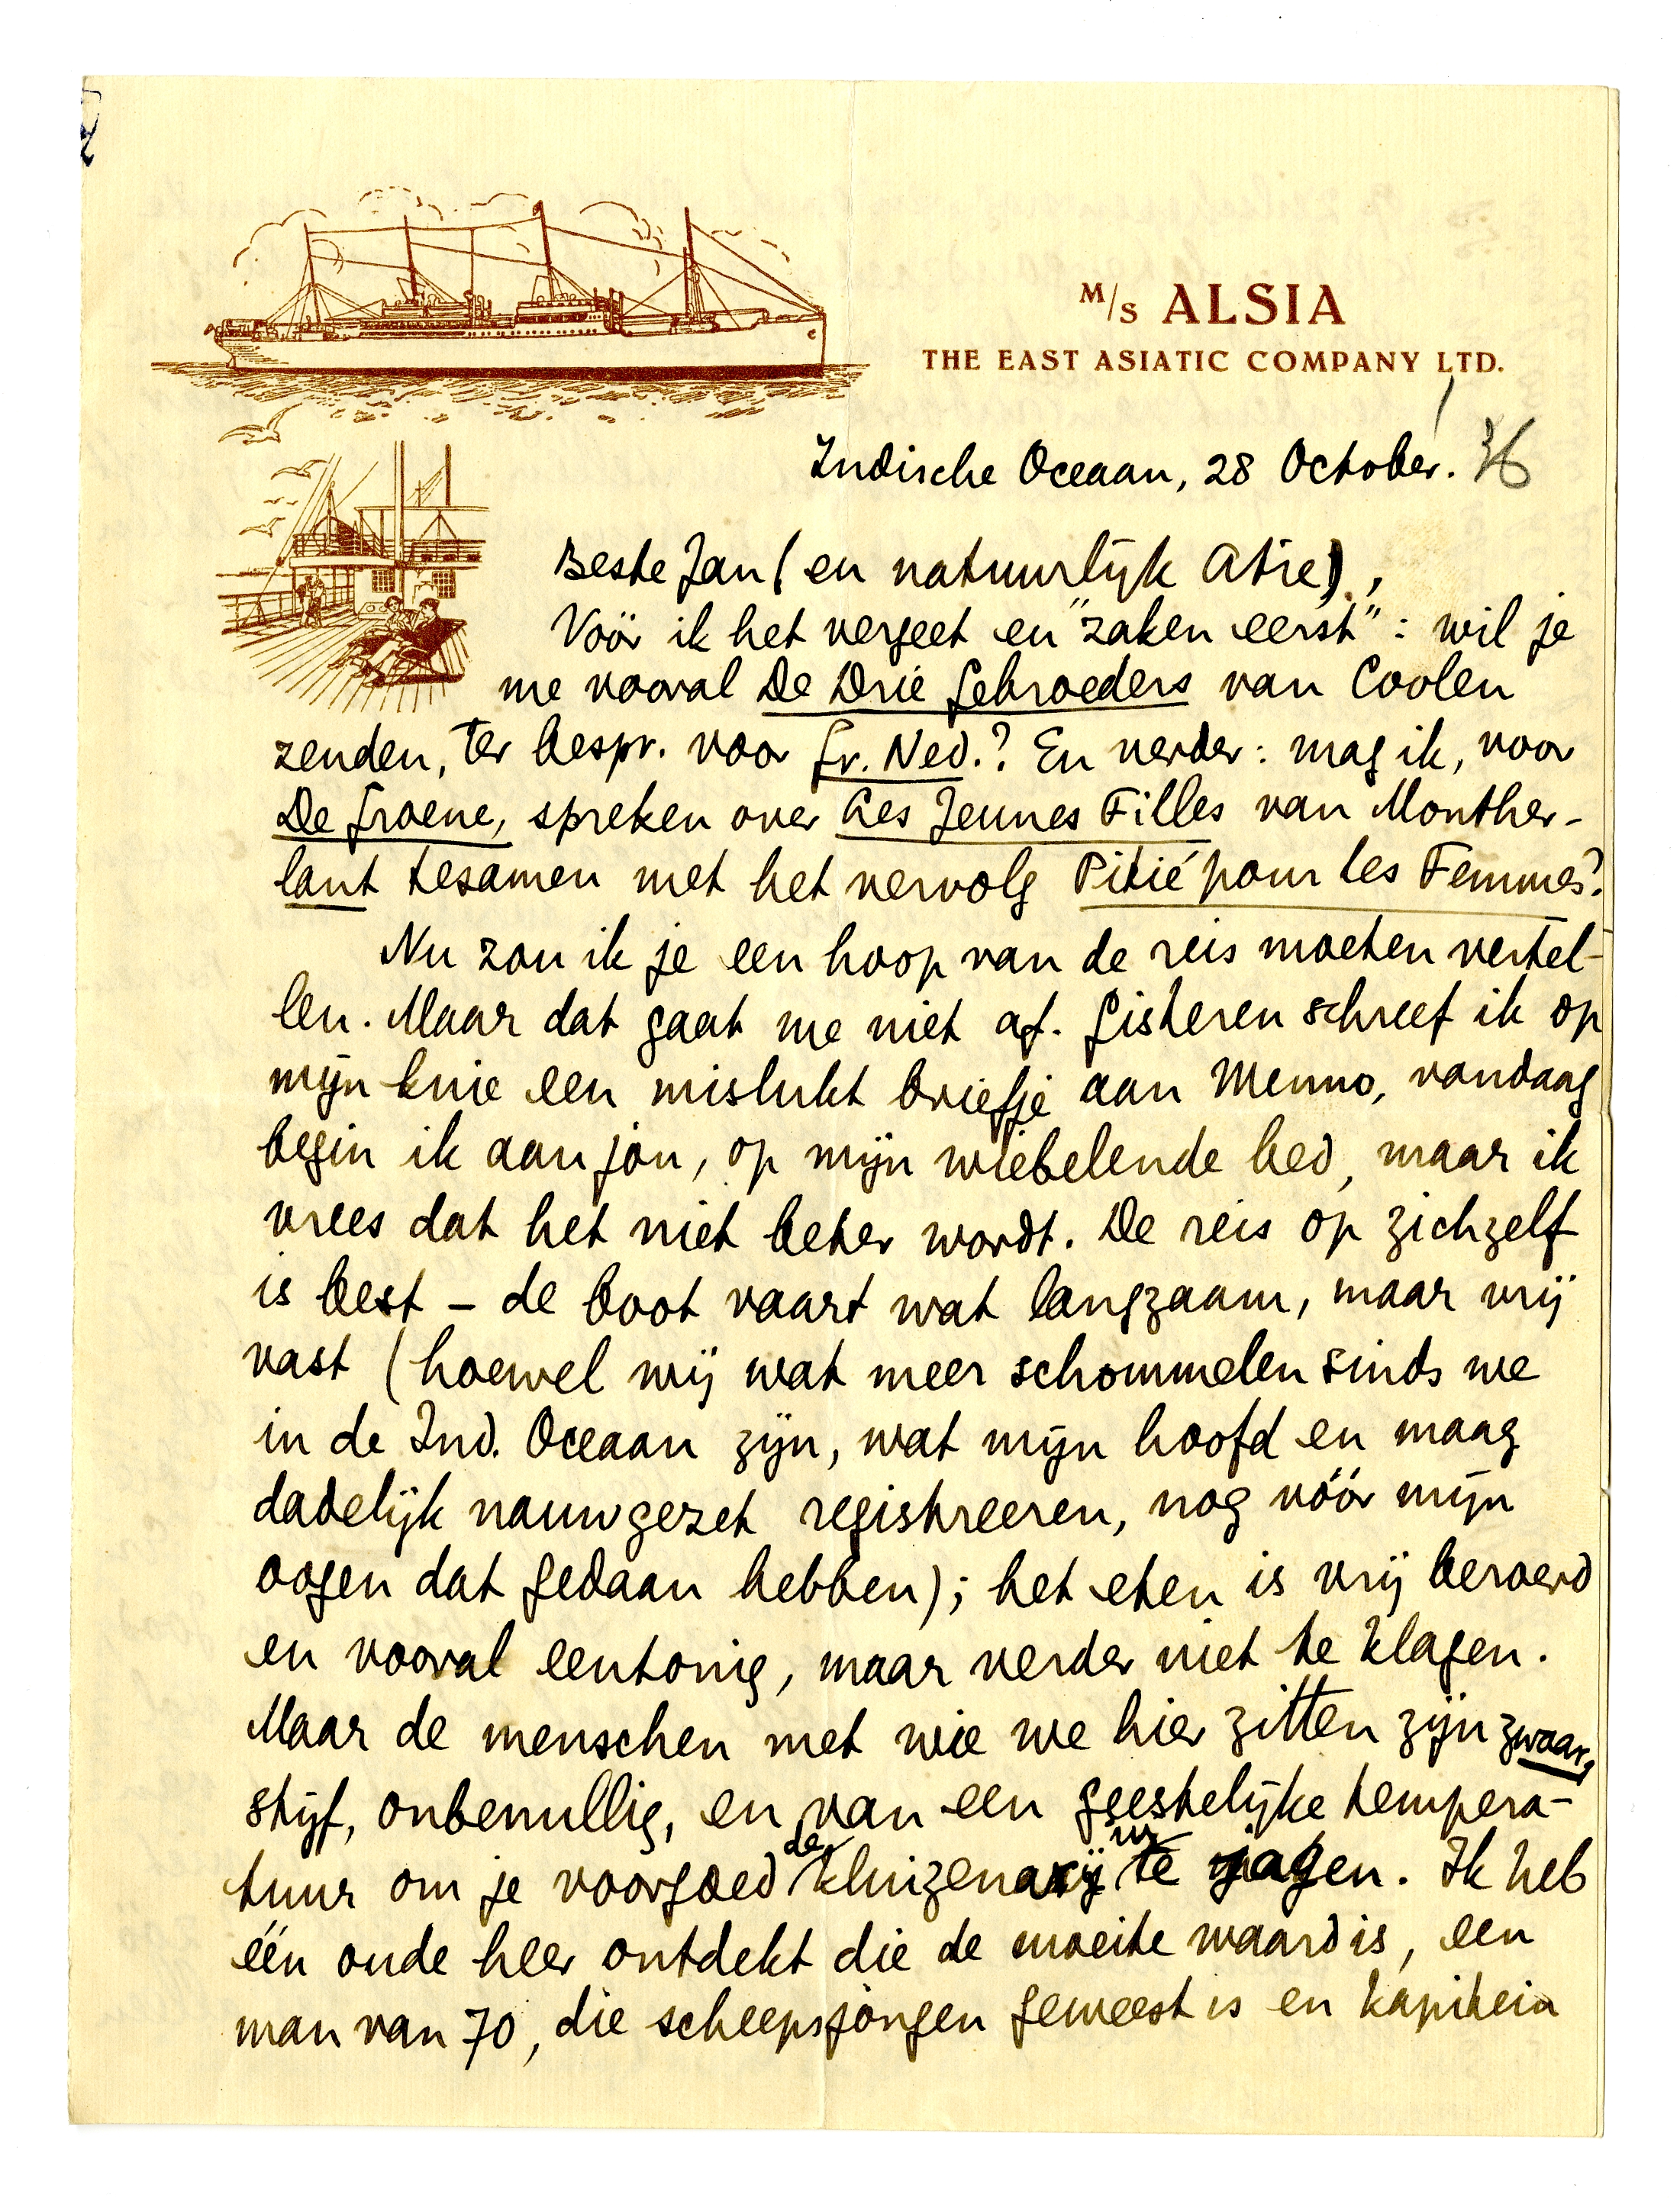 M/s ALSIA
THE EAST ASIATIC COMPANY LTD.
Indische Oceaan, 28 October. 36
Beste Jan (en natuurlijk Atie),
Vóór ik het vergeet en "zaken eerst": wil je
me vooral De Drie Gebroeders van Coolen
zenden, ter bespr. voor Gr. Ned.? En verder: mag ik, voor
De Groene, spreken over Les Jeunes Filles van Monther-
lant tesamen met het vervolg Pitié pour les Femmes?
Nu zou ik je een hoop van de reis moeten vertel-
len. Maar dat gaat me niet af. Gisteren schreef ik op
mijn knie een mislukt briefje aan Menno, vandaag
begin ik aan jou, op mijn wiebelende bed, maar ik
vrees dat het niet beter wordt. De reis op zichzelf
is best – de boot vaart wat langzaam, maar vrij
vast (hoewel wij wat meer schommelen sinds we
in de Ind. Oceaan zijn, wat mijn hoofd en maag
dadelijk nauwgezet registreeren, nog vóór mijn
oogen dat gedaan hebben); het eten is vrij beroerd
en vooral eentonig, maar verder niet te klagen.
Maar de menschen met wie we hier zitten zijn zwaar,
stijf, onbenullig, en van een geestelijke tempera-
tuur om je voorgoed de kluizenarij in te jagen. Ik heb
één oude heer ontdekt die de moeite waard is, een
man van 70, die scheepsjongen geweest is en kapitein